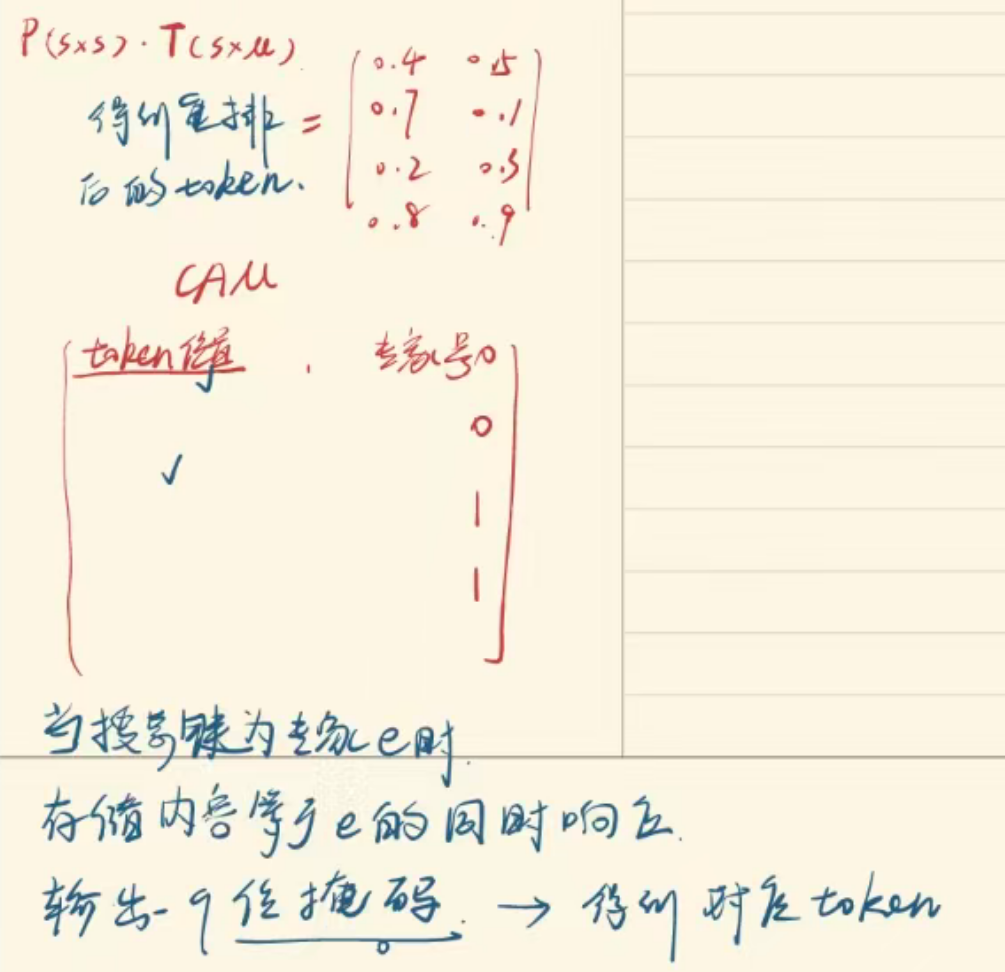 P(s×s)·T(s×M)
得到重排 =
后的token.
0.4 0.5
0.7 0.1
0.2 0.3
0.8 0.9
CAM
token位置 , 专家号0
✓
0
✓
1
1
当搜索键为专家e时.
存储内容等于e的同时响应.
输出一个位掩码. → 得到对应token